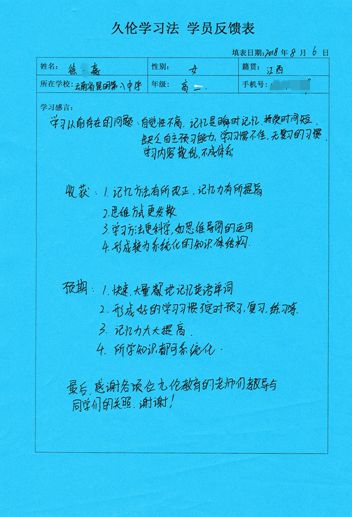 久伦学习法 学员反馈表
填表日期:2018年8月6日
姓名: 徐 嘉 性别: 女 籍贯: 江西
所在学校: 云南省昆明第八中学 年级: 高一 手机号:
学习感言:
学习以前存在的问题: 自觉性不高, 记忆是瞬时记忆, 持续时间短.
缺乏自主预习能力, 学习习惯不佳, 无复习的习惯,
学习内容散乱, 不成体系
收获: 1. 记忆方法有所改正, 记忆力有所提高
2. 思维方式更发散
3. 学习方法更科学, 如思维导图的运用
4. 形成较为系统化的知识体结构.
预期: 1. 快速、大量地记忆英语单词
2. 形成好的学习习惯定时预习、复习、练习等.
3. 记忆力大大提高.
4. 所学知识都可系统化.
最后, 感谢各位久伦教育的老师们教导与
同学们的关照, 谢谢!